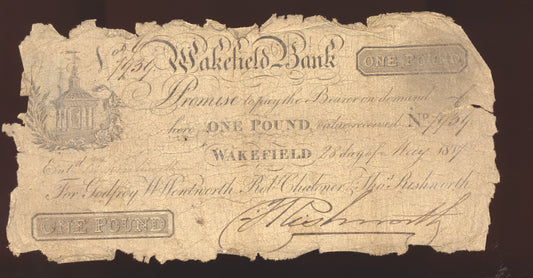 No 7959 Wakefield Bank ONE POUND
I Promise to pay the Bearer on demand
here ONE POUND value received No 7959
WAKEFIELD 28 day of May 1817
Entd
For Godfrey W. Wentworth Robt Chaloner & Thos Rishworth
ONE POUND T Rishworth